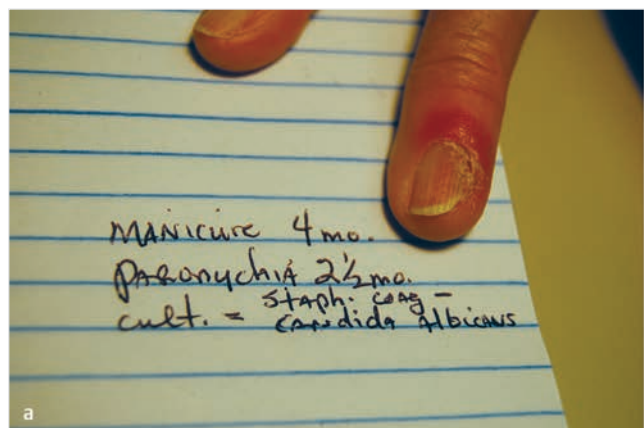 MANICURE 4 mo.
PARONYCHIA 2½ mo.
Staph. coag –
cult. = CANDIDA AlbicANS
a